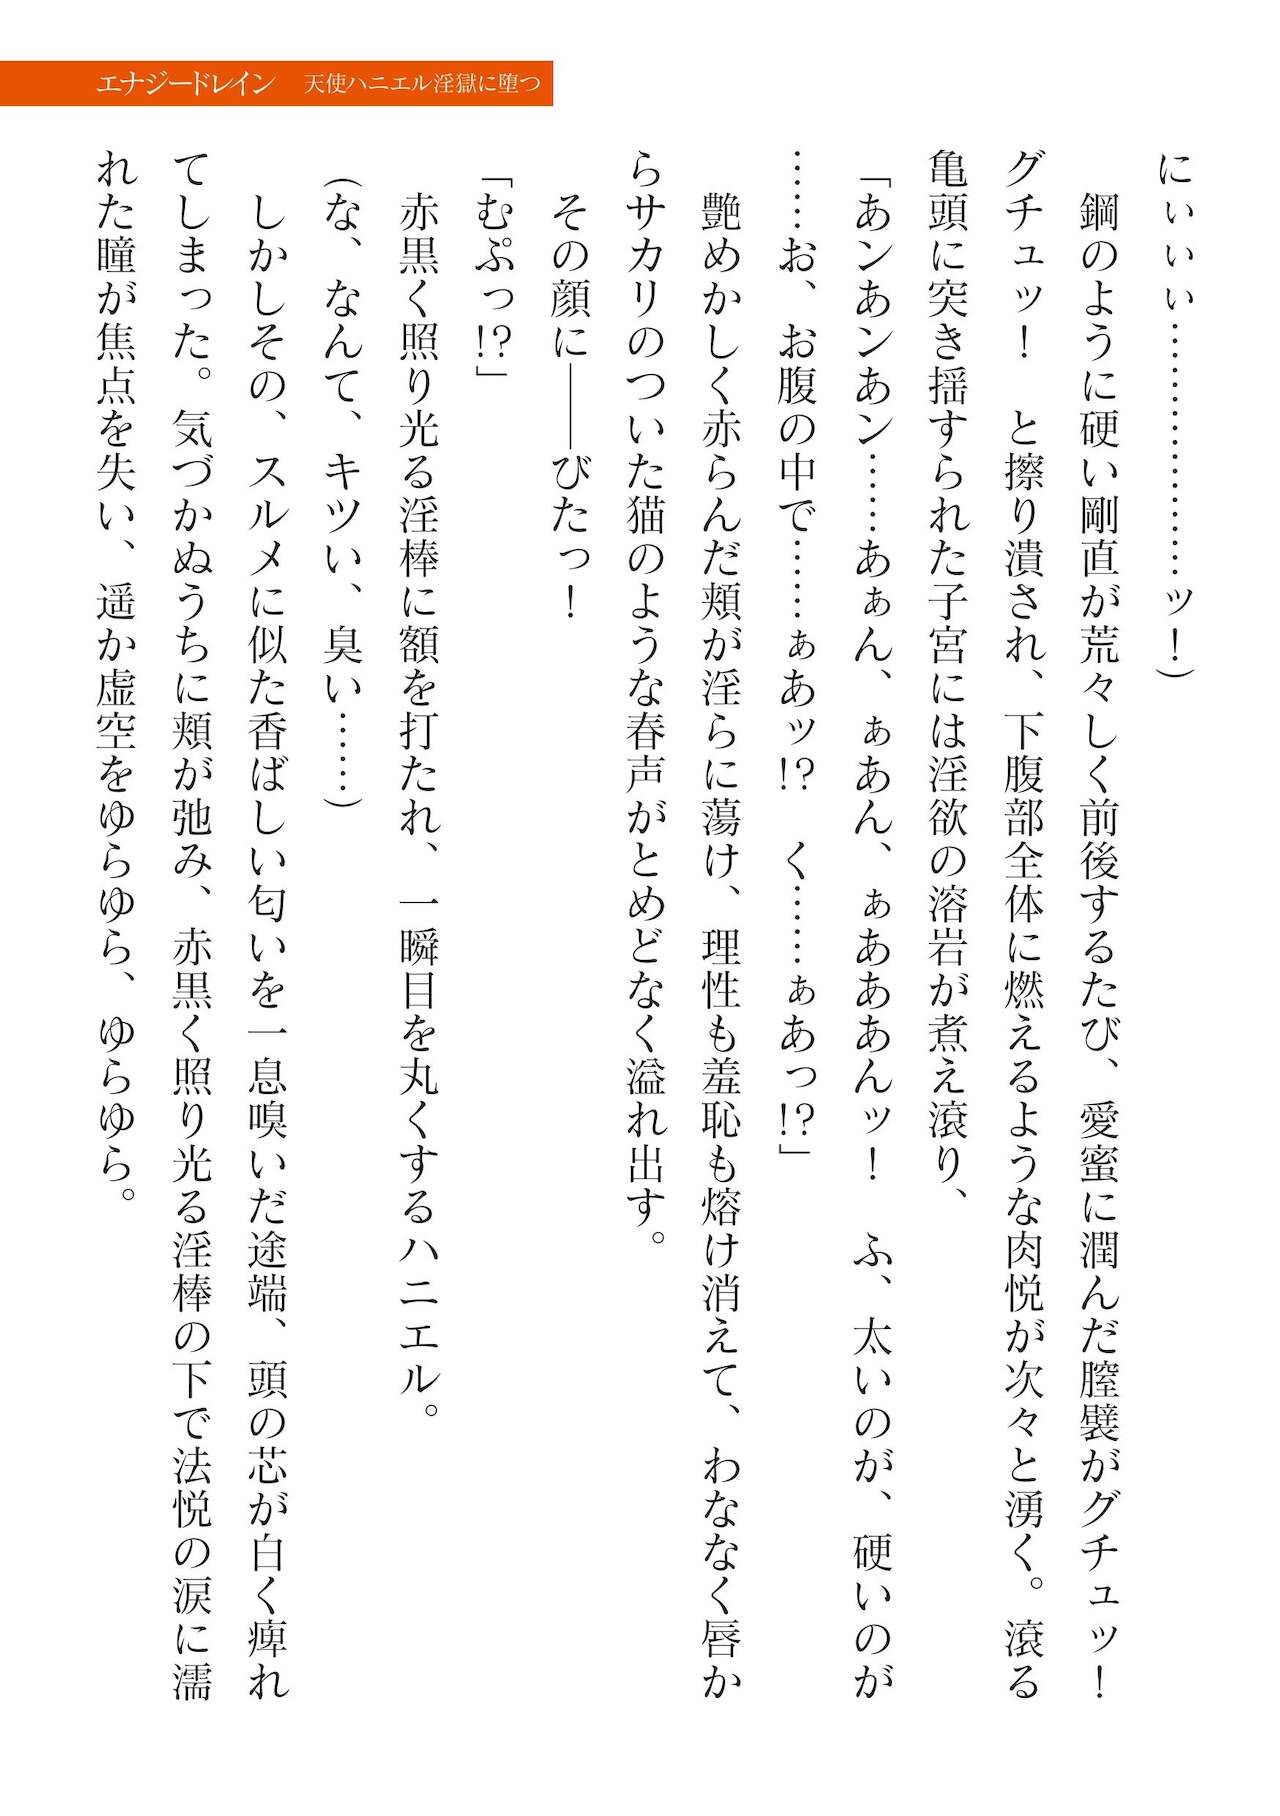 エナジードレイン　天使ハニエル淫獄に堕つ
にぃぃぃ………………ッ！）
　鋼のように硬い剛直が荒々しく前後するたび、愛蜜に潤んだ膣襞がグチュッ！
グチュッ！　と擦り潰され、下腹部全体に燃えるような肉悦が次々と湧く。滾る
亀頭に突き揺すられた子宮には淫欲の溶岩が煮え滾り、
「あンあンあン……あぁん、ぁあん、ぁあああんッ！　ふ、太いのが、硬いのが
……お、お腹の中で……ぁあッ!?　く……ぁあっ!?」
　艶めかしく赤らんだ頬が淫らに蕩け、理性も羞恥も熔け消えて、わななく唇か
らサカリのついた猫のような春声がとめどなく溢れ出す。
　その顔に――びたっ！
「むぷっ!?」
　赤黒く照り光る淫棒に額を打たれ、一瞬目を丸くするハニエル。
（な、なんて、キツい、臭い……）
　しかしその、スルメに似た香ばしい匂いを一息嗅いだ途端、頭の芯が白く痺れ
てしまった。気づかぬうちに頬が弛み、赤黒く照り光る淫棒の下で法悦の涙に濡
れた瞳が焦点を失い、遥か虚空をゆらゆら、ゆらゆら。